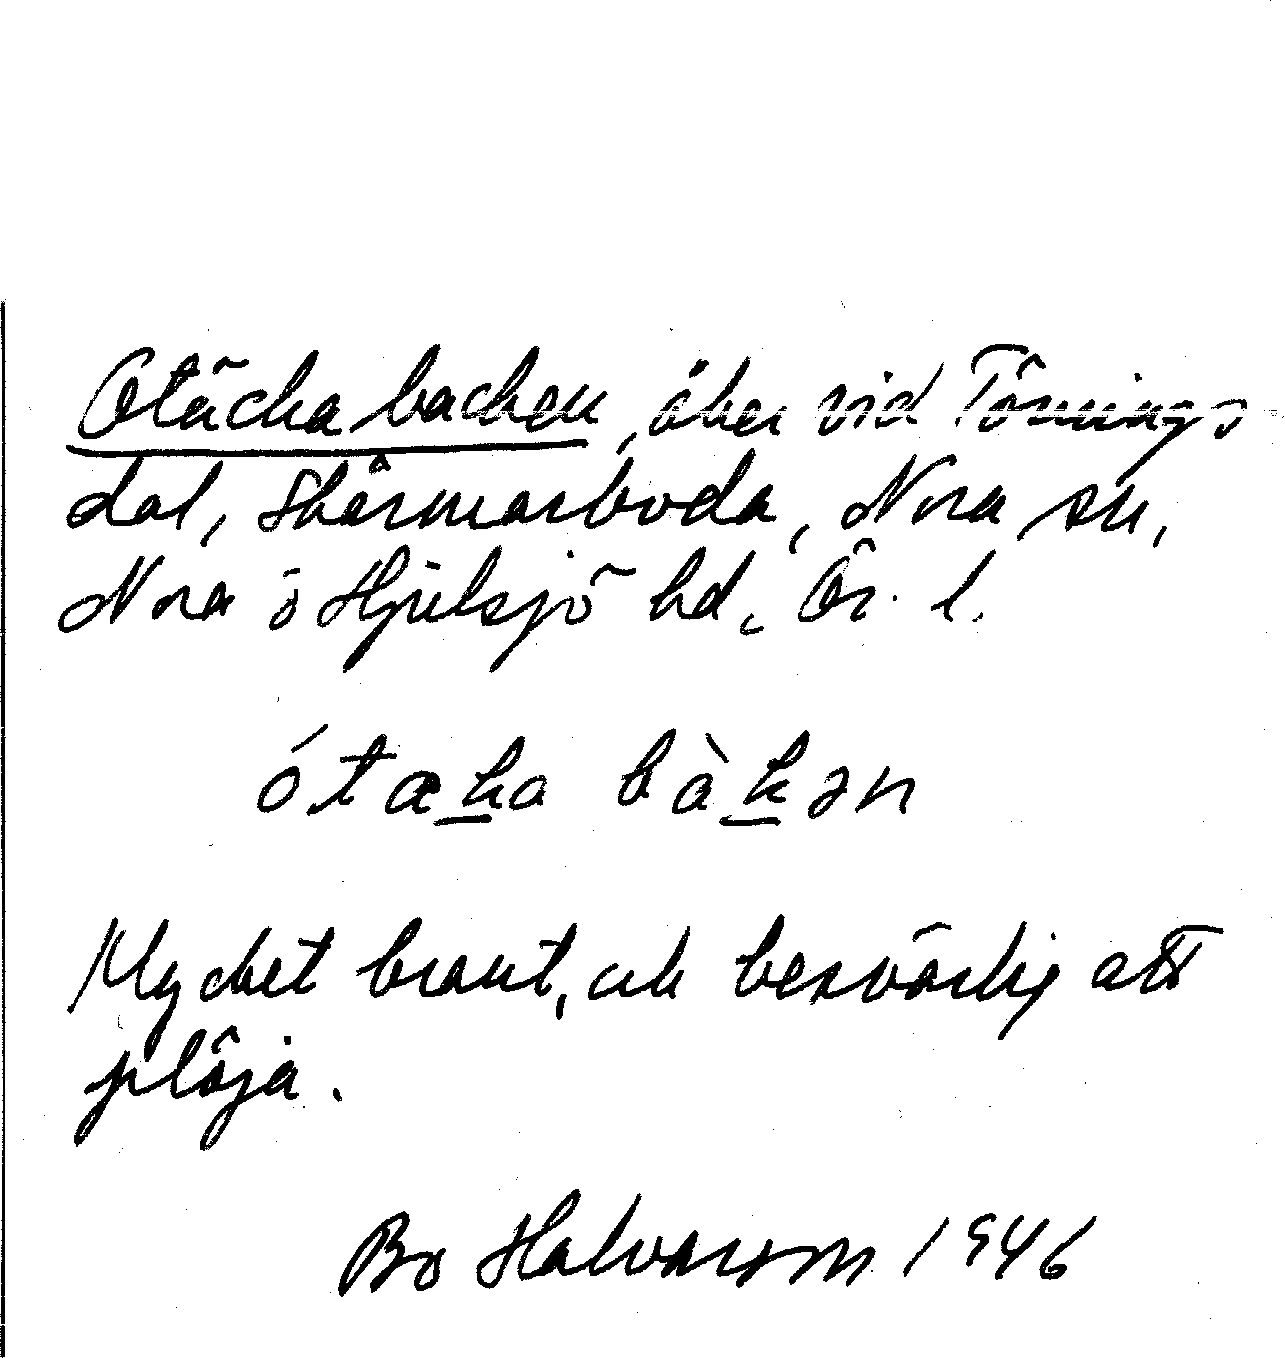 Otäcka backen, åker vid Törnings
dal, Skärmarboda, Nora sn,
Nora o Hjulsjö hd, Ör. l.
ótæka bàkən
Mycket brant, och besvärlig att
plöja.
Bo Halvarson 1946